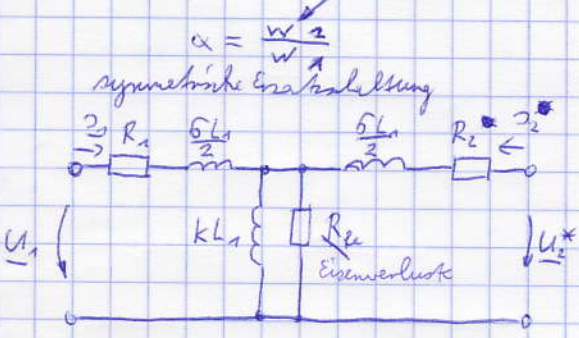 α = w 2 / w 1
symmetrische Ersatzschaltung
I1 R1 σL1/2 σL1/2 R2* I2*
U1 kL1 RFe U2*
Eisenverluste